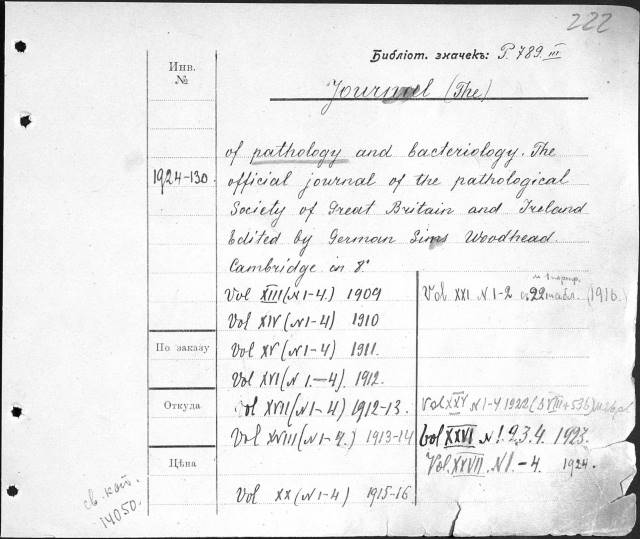 222
Библіот. значекъ: P. 789. III
Journal (The)
Инв.
№
1924-130.
of pathology and bacteriology. The
official journal of the pathological
Society of Great Britain and Ireland
Edited by German Sims Woodhead.
Cambridge in 8°
Vol XIII (N 1-4.) 1909
Vol XIV (N 1-4) 1910
Vol XV (N 1-4) 1911.
Vol XVI (N 1.-4). 1912.
Vol XVII (N 1-4) 1912-13.
Vol XVIII (N 1-4.) 1913-14
Vol XX (N 1-4) 1915-16
Vol XXI N 1-2 22 табл. (1916.)
Vol XXV N 1-4 1922 (
Vol XXVI N 1. 2. 3. 4. 1923.
Vol. XXVII. N 1.-4. 1924.
По заказу
Откуда
Цѣна
св. кат.
14050.